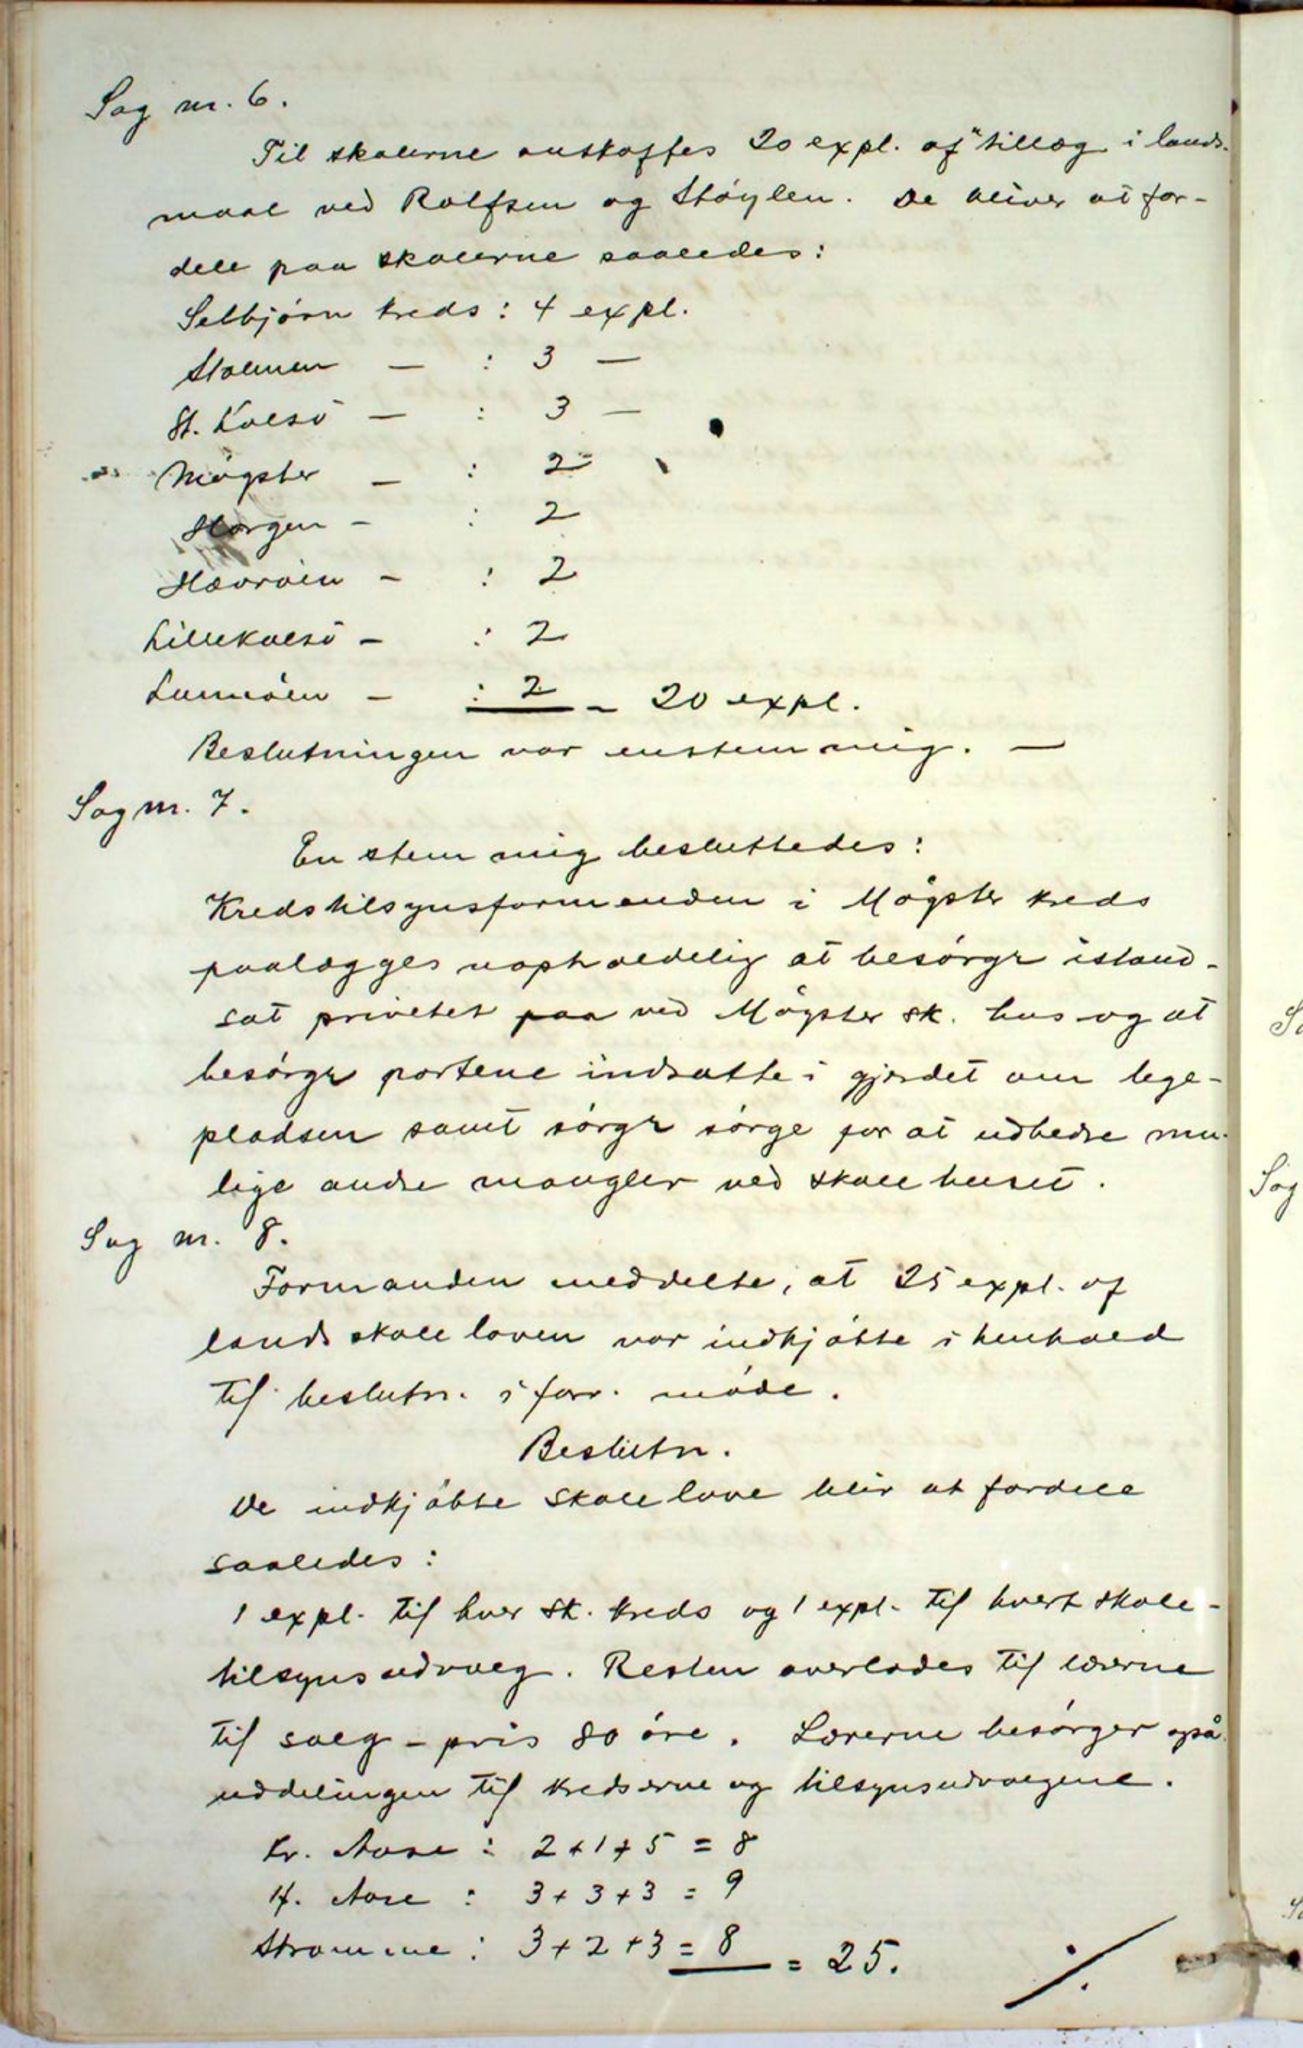 Sag nr. 6.
Til skolerne anskaffes 20 expl. af "tillæg i lands-
maal ved Rolfsen og Støylen. De bliver at for-
dele paa skolerne saaledes:
Selbjørn kreds: 4 expl.
Stolmen — : 3 —
St. Kalsø — : 3 —
Møgster — : 2
Horgen — : 2
Hævrøen — : 2
Lillekalsø — : 2
Lunnøen — : 2 = 20 expl.
Beslutningen var enstemmig. —
Sag nr. 7.
Enstemmig besluttedes:
Kredstilsynsformanden i Møgster kreds
paalægges uopholdelig at besørge istand-
sat privetet paa ved Møgster sk. hus og at
besørge portene indsatte i gjerdet om lege-
pladsen samt sørge sørge for at udbedre mu-
lige andre mangler ved skolehuset.
Sag nr. 8.
Formanden meddelte, at 25 expl. af
landsskoleloven var indkjøbte i henhold
til beslutn. i forr. møde.
Beslutn.
De indkjøbte skolelove blir at fordele
saaledes:
1 expl. til hver sk. kreds og 1 expl. til hvert skole-
tilsynsudvalg. Resten overlades til lærerne
til salg - pris 80 øre. Lærerne besørger også
uddelingen til kredserne og tilsynsudvalgene.
Kr. Aase : 2+1+5 = 8
H. Aase : 3+3+3 = 9
Strømme : 3+2+3 = 8 = 25.
Sag